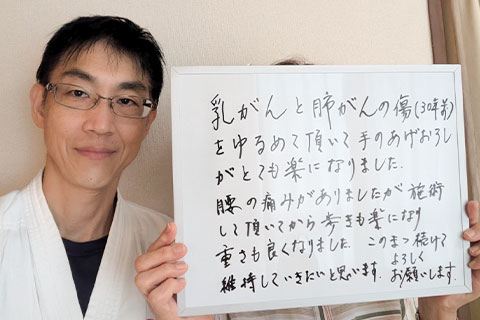 乳がんと肺がんの傷(30年前)
をゆるめて頂いて手のあげおろし
がとても楽になりました.
腰の痛みがありましたが施術
して頂いてから歩きも楽になり
重さも良くなりました. このまつ続けて
維持していきたいと思います. よろしく
お願いします.